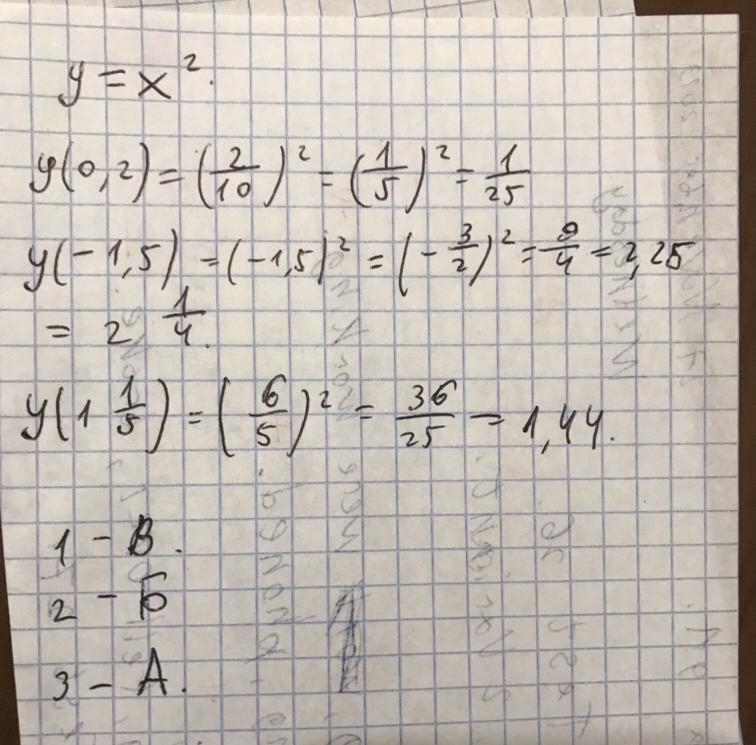 y = x².
y(0,2) = (2/10)² = (1/5)² = 1/25
y(-1,5) = (-1,5)² = (-3/2)² = 9/4 = 2,25
= 2 1/4.
y(1 1/5) = (6/5)² = 36/25 = 1,44.
1 - В.
2 - Б
3 - А.